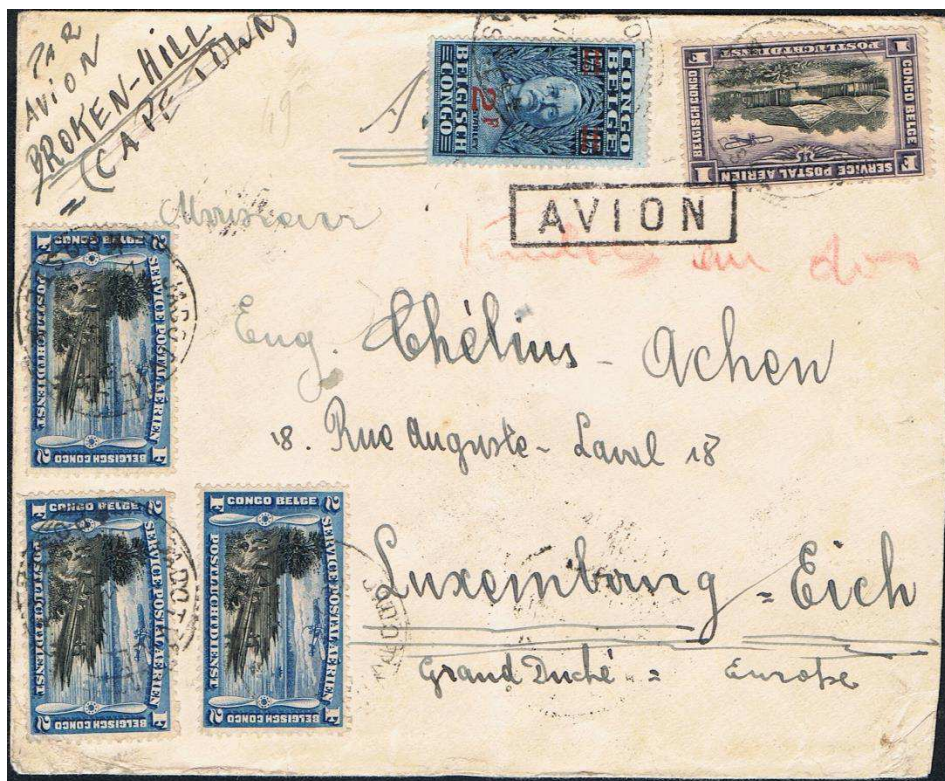 PAR
AVION
BROKEN-HILL
= (CAPE TOWN)
CONGO
BELGE
2F
BELGISCH
CONGO
1 F CONGO BELGE
BELGISCH CONGO F 1
SERVICE POSTAL AÉRIEN
POSTLUCHTDIENST
AVION
Monsieur
Eug. Thélius - Achen
18. Rue Auguste - Laval 18
Luxembourg = Eich
Grand Duché = Europe
CONGO BELGE
SERVICE POSTAL AÉRIEN
POSTLUCHTDIENST
2 BELGISCH CONGO F
F CONGO BELGE 2
SERVICE POSTAL AÉRIEN
POSTLUCHTDIENST
2 BELGISCH CONGO F
F CONGO BELGE 2
SERVICE POSTAL AÉRIEN
POSTLUCHTDIENST
2 BELGISCH CONGO F